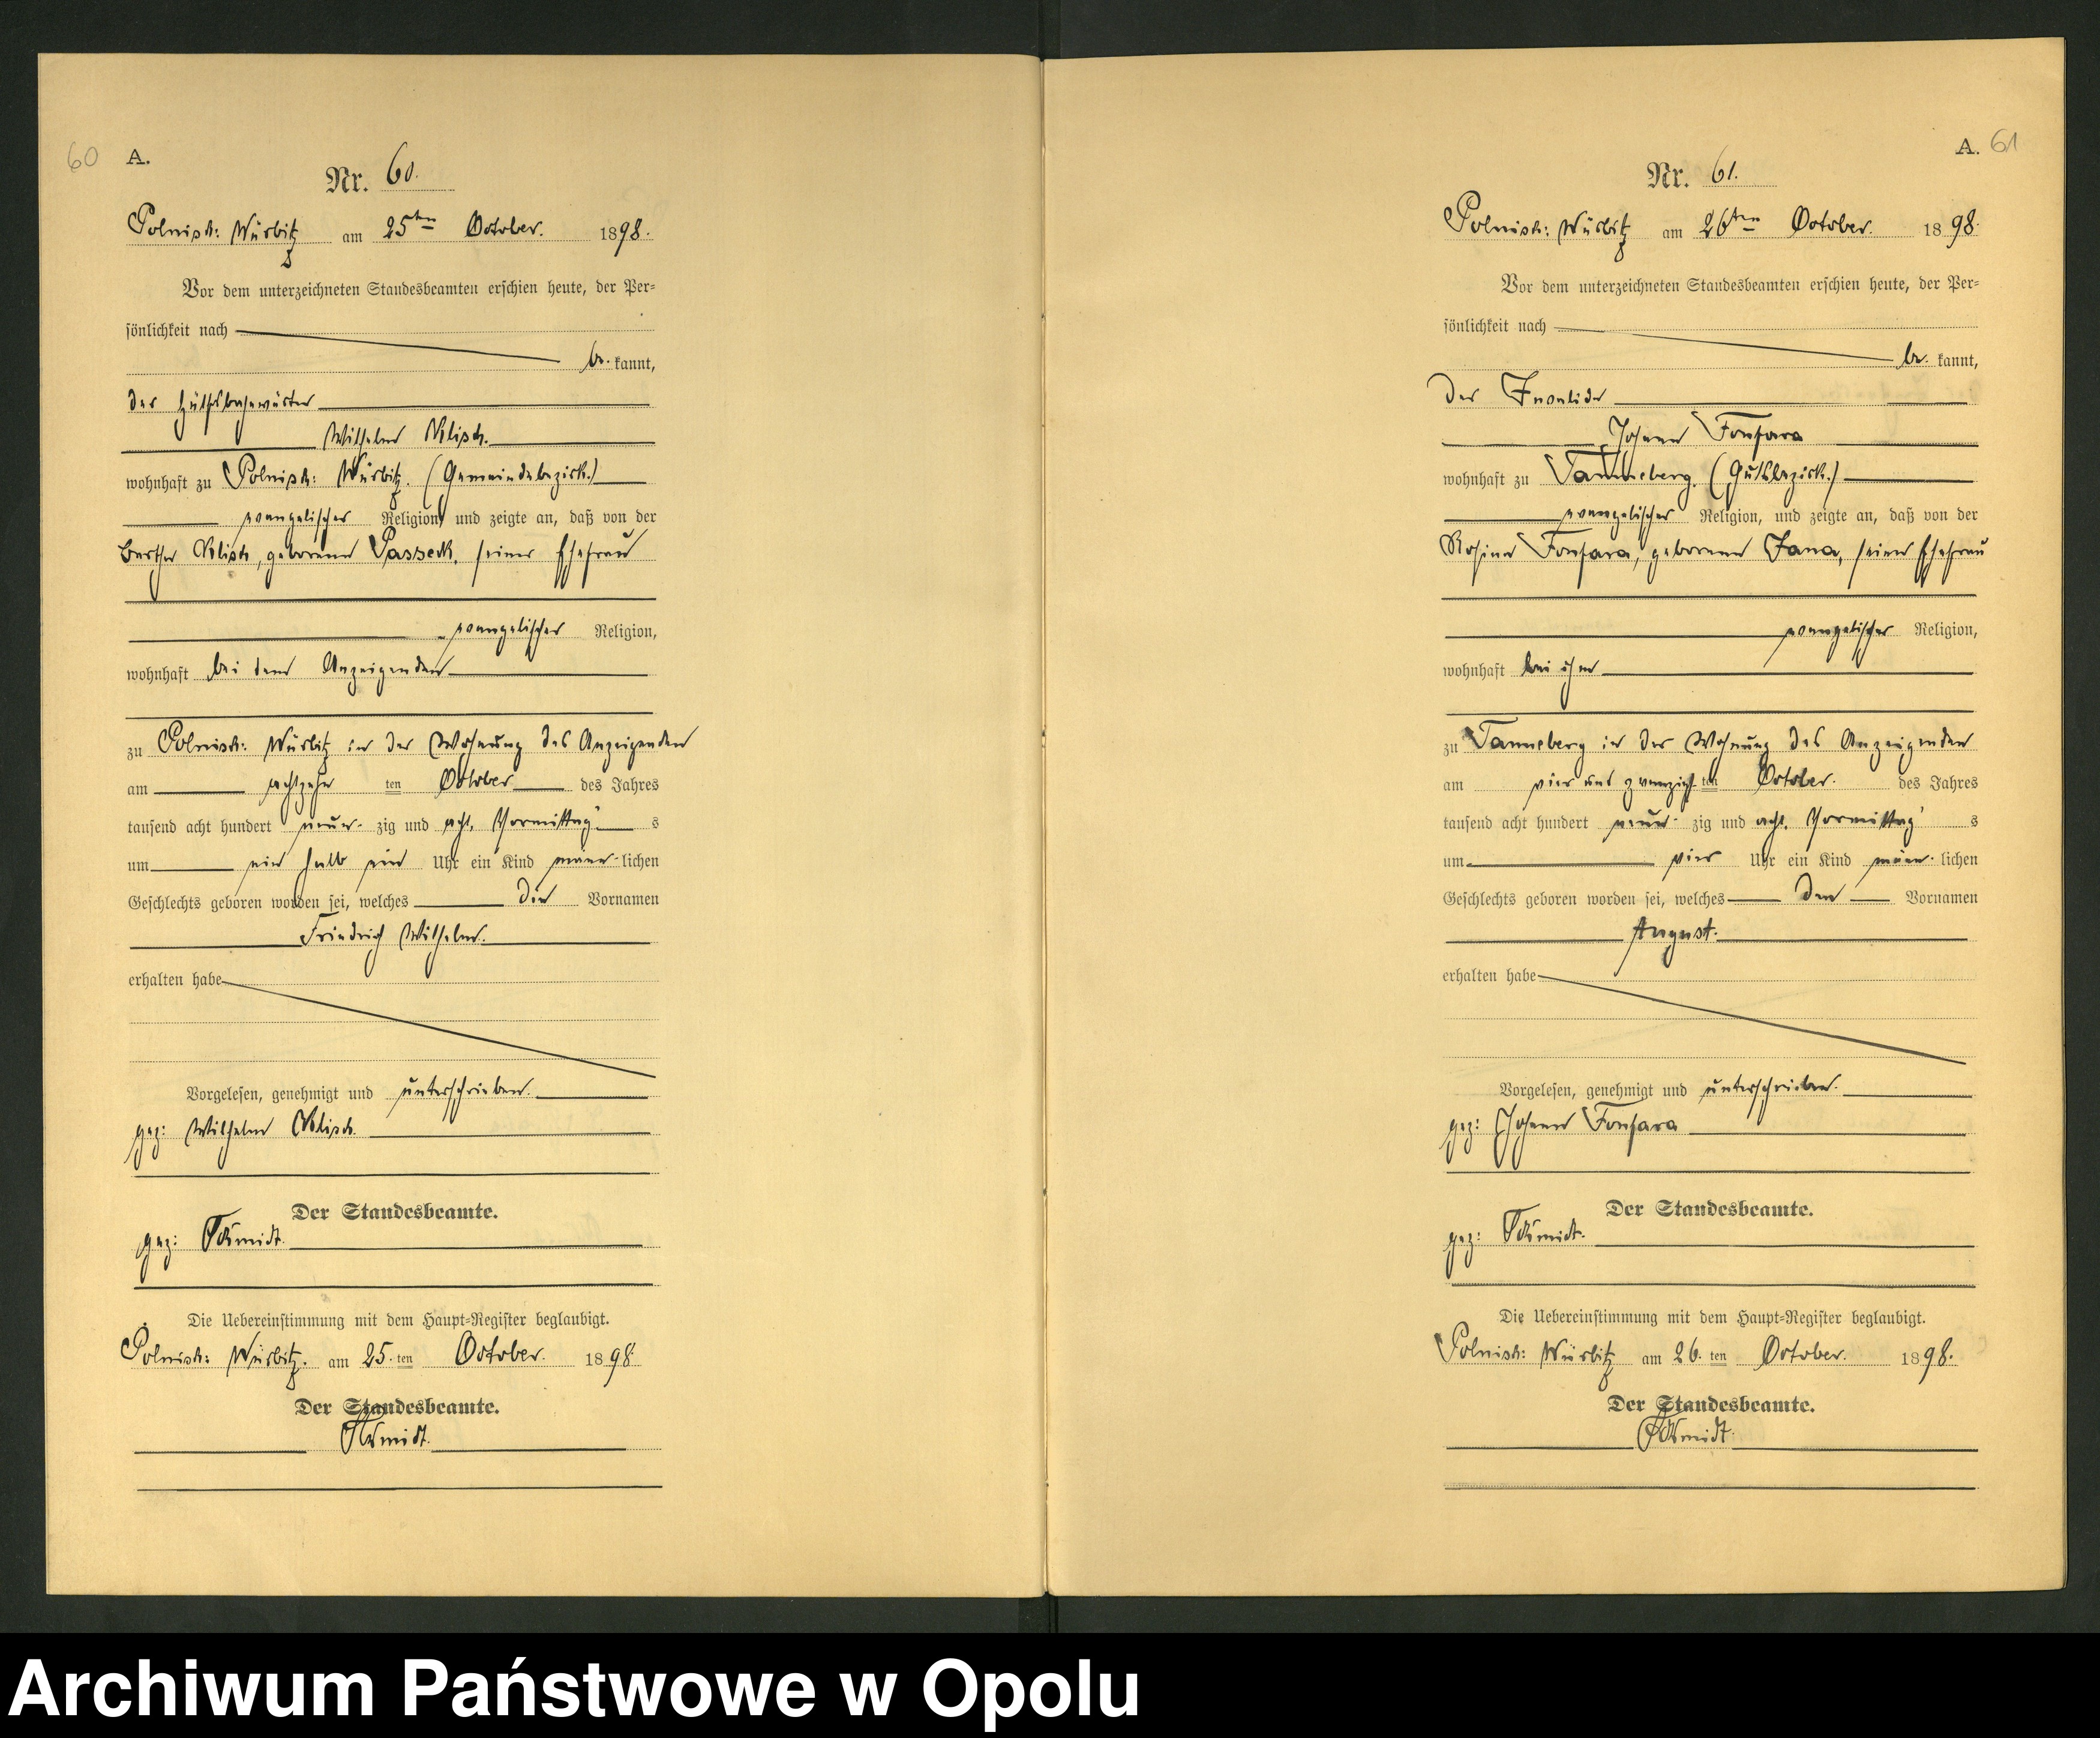 60
A.
Nr. 60.
Polnisch: Würbitz am 25ten October. 1898.
Vor dem unterzeichneten Standesbeamten erschien heute, der Per=
sönlichkeit nach
be. kannt,
der Hülfsbahnwärter
Wilhelm Klisch.
wohnhaft zu Polnisch: Würbitz. (Gemeindebezirk.)
evangelischer Religion, und zeigte an, daß von der
Bertha Klisch, geborenen Passeck, seiner Ehefrau
evangelischer Religion,
wohnhaft bei dem Anzeigenden
zu Polnisch: Würbitz in der Wohnung des Anzeigenden
am achtzehn ten October des Jahres
tausend acht hundert neun- zig und acht, Vormittag s
um ein halb ein Uhr ein Kind männ- lichen
Geschlechts geboren worden sei, welches die Vornamen
Friedrich Wilhelm.
erhalten habe
Vorgelesen, genehmigt und unterschrieben.
gez: Wilhelm Klisch
Der Standesbeamte.
gez: Schmidt.
Die Uebereinstimmung mit dem Haupt=Register beglaubigt.
Polnisch: Würbitz. am 25. ten October. 1898.
Der Standesbeamte.
Schmidt.
A. 61
Nr. 61.
Polnisch: Würbitz am 26ten October. 1898.
Vor dem unterzeichneten Standesbeamten erschien heute, der Per=
sönlichkeit nach
be. kannt,
der Invalide
Johann Fonfara
wohnhaft zu Tanneberg. (Gutsbezirk.)
evangelischer Religion, und zeigte an, daß von der
Rosina Fonfara, geborenen Jana, seiner Ehefrau
evangelischer Religion,
wohnhaft bei ihm
zu Tanneberg in der Wohnung des Anzeigenden
am vier und zwanzigs ten October. des Jahres
tausend acht hundert neun- zig und acht, Vormittag s
um vier Uhr ein Kind männ- lichen
Geschlechts geboren worden sei, welches den Vornamen
August.
erhalten habe
Vorgelesen, genehmigt und unterschrieben.
gez: Johann Fonfara
Der Standesbeamte.
gez: Schmidt.
Die Uebereinstimmung mit dem Haupt=Register beglaubigt.
Polnisch: Würbitz am 26. ten October. 1898.
Der Standesbeamte.
Schmidt.
Archiwum Państwowe w Opolu